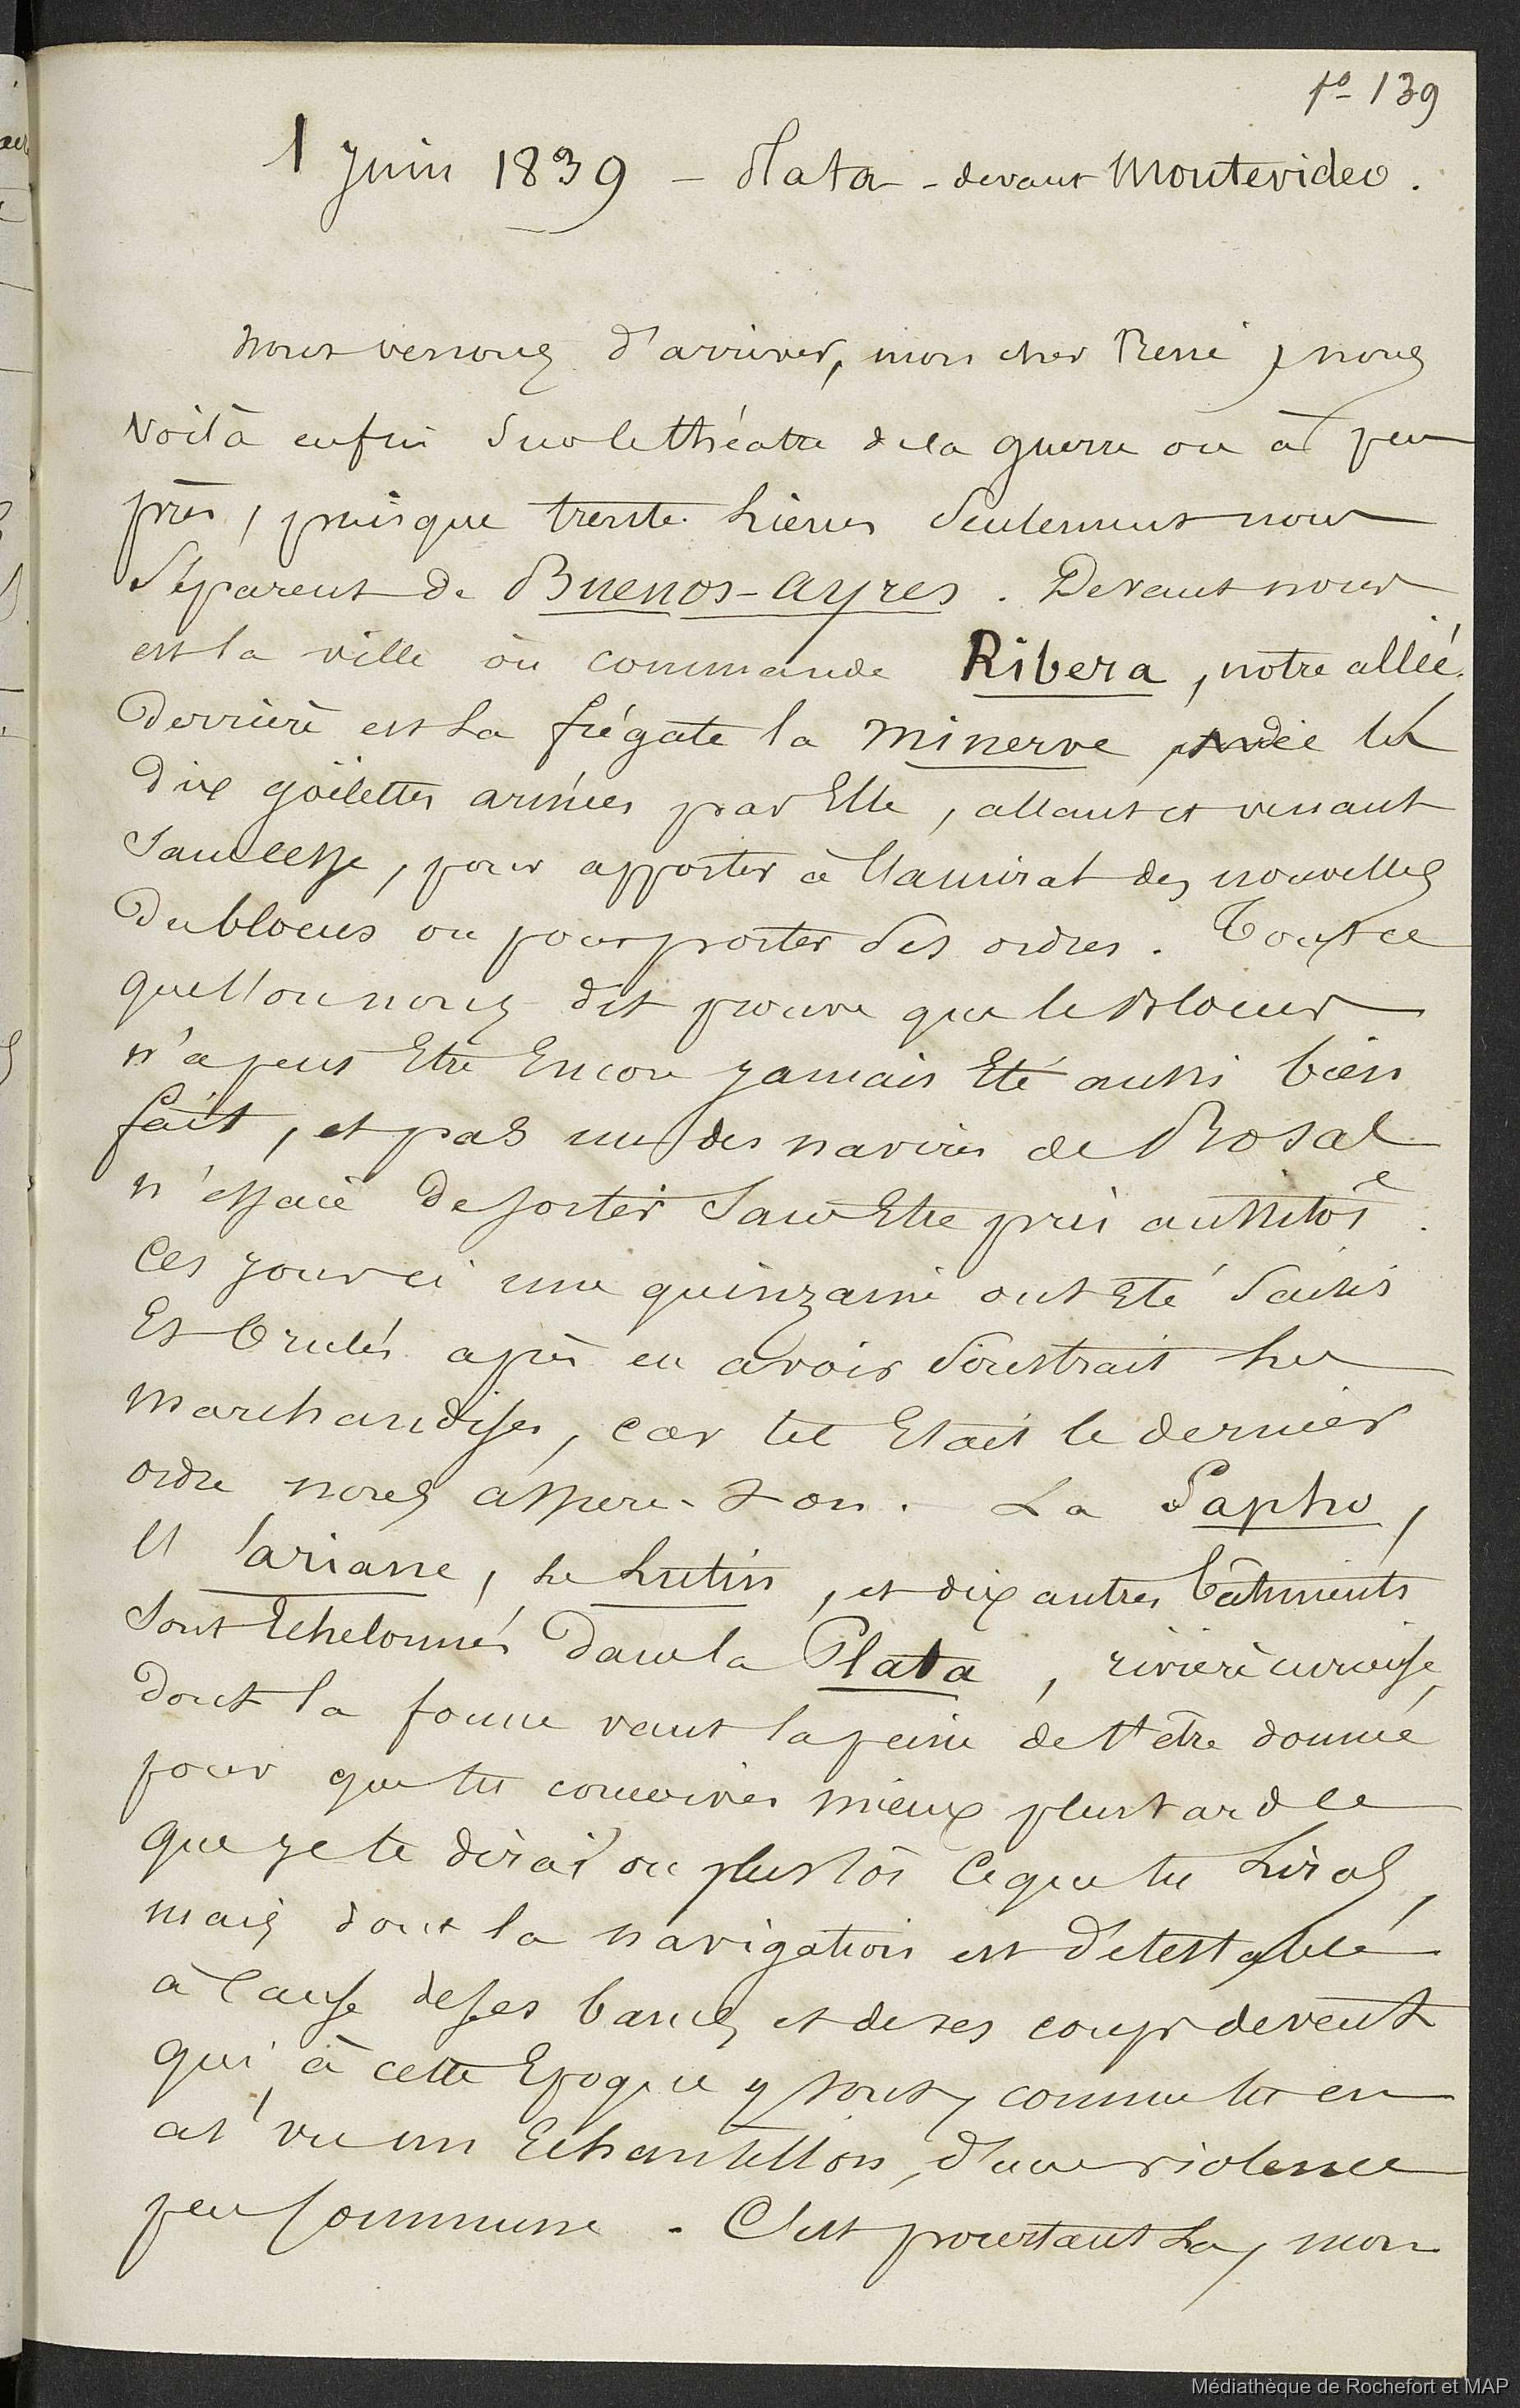 fo 139
1 Juin 1839 - Plata - devant Montevideo.
Nous venons d'arriver, mon cher René, nous
voilà enfin sur le théatre de la guerre ou à peu
près, puisque trente lieues seulement nous
séparent de Buenos-Ayres. Devant nous
est la ville où commande Ribera, notre allié.
Derrière est la frégate la Minerve, les
dix goëlettes armées par Elle, allant et venant
sans cesse, pour apporter à l'amiral des nouvelles
du blocus ou pour porter des ordres. Tout ce
que l'on nous dit prouve que le blocus
n'a peut Etre Encore jamais Eté aussi bien
fait, et pas un des navires de Rosas
n'essaie de sortir sans Etre pris aussitôt.
Ces jours ci une quinzaine ont Eté saisis
Et brulés après en avoir soustrait les
marchandises, car tel Etait le dernier
ordre nous assure-t-on. La Sapho,
l'ariane, le Lutin, et dix autres bâtiments
sont Echelonnés dans la Plata, rivière curieuse,
dont la forme vaut la peine de t'être donnée
pour que tu concoives mieux plus tard ce
que je te dirai ou plustôt ce que tu liras,
mais dont la navigation est détestable
à cause de ses bancs et de ses coups de vent
qui, à cette Epoque y sont, comme tu en
as vu un Echantillon, d'une violence
peu commune. C'est pourtant là, mon